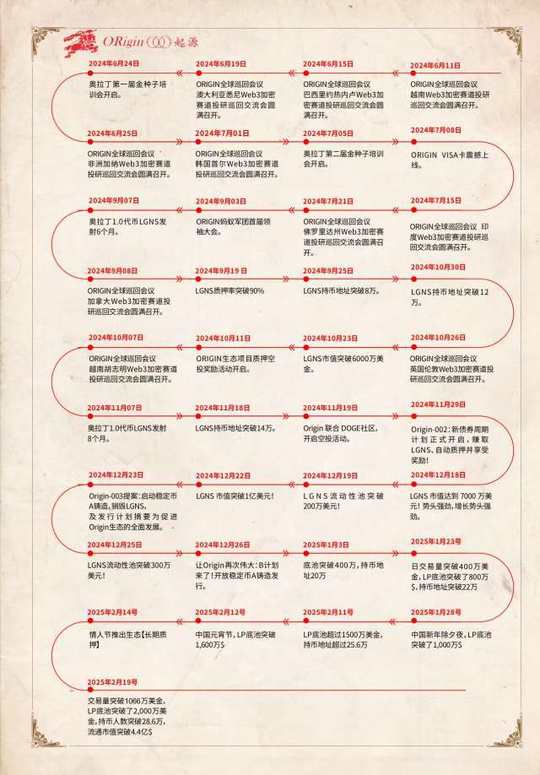 ORigin 起源
2024年06月11日
ORIGIN全球巡回会议
越南Web3加密赛道投研
巡回交流会圆满召开。
2024年06月15日
ORIGIN全球巡回会议
巴西里约热内卢Web3加
密赛道投研巡回交流会圆
满召开。
2024年06月19日
ORIGIN全球巡回会议
澳大利亚悉尼Web3加密
赛道投研巡回交流会圆
满召开。
2024年06月24日
奥拉丁第一届金种子培
训会开启。
2024年06月25日
ORIGIN全球巡回会议
非洲加纳Web3加密赛道
投研巡回交流会圆满召开。
2024年07月01日
ORIGIN全球巡回会议
韩国首尔Web3加密赛道
投研巡回交流会圆满召开。
2024年07月05日
奥拉丁第二届金种子培训
会开启。
2024年07月08日
ORIGIN VISA卡震撼上
线。
2024年07月15日
ORIGIN全球巡回会议 印
度Web3加密赛道投研巡
回交流会圆满召开。
2024年07月21日
ORIGIN全球巡回会议
佛罗里达州Web3加密赛
道投研巡回交流会圆满召
开。
2024年09月03日
ORIGIN蚂蚁军团首届领
袖大会。
2024年09月07日
奥拉丁1.0代币LGNS发
射6个月。
2024年09月08日
ORIGIN全球巡回会议
加拿大Web3加密赛道投
研巡回交流会圆满召开。
2024年09月19 日
LGNS质押率突破90%
2024年09月25日
LGNS持币地址突破8万。
2024年10月30日
LGNS持币地址突破12
万。
2024年10月26日
ORIGIN全球巡回会议
英国伦敦Web3加密赛道投
研巡回交流会圆满召开。
2024年10月23日
LGNS市值突破6000万美
金。
2024年10月11日
ORIGIN生态项目质押空
投奖励活动开启。
2024年10月07日
ORIGIN全球巡回会议
越南胡志明Web3加密赛道
投研巡回交流会圆满召开。
2024年11月07日
奥拉丁1.0代币LGNS发射
8个月。
2024年11月18日
LGNS持币地址突破14万。
2024年11月19日
Origin 联合 DOGE社区，
开启空投活动。
2024年11月29日
Origin-002：新债券周期
计划正式开启，赚取
LGNS，自动质押并享受
奖励！
2024年12月18日
LGNS 市值达到 7000 万美
元！势头强劲，增长势头强
劲。
2024年12月19日
LGNS流动性池突破
200万美元！
2024年12月22日
LGNS 市值突破1亿美元！
2024年12月23日
Origin-003提案：启动稳定币
A铸造，销毁LGNS，
及发行计划摘要为促进
Origin生态的全面发展。
2024年12月25日
LGNS流动性池突破300万
美元！
2024年12月26日
让Origin再次伟大：B计划
来了！开放稳定币A铸造发
行。
2025年1月3日
底池突破400万，持币地
址20万
2025年1月23号
日交易量突破400万美
金，LP底池突破了800万
$，持币地址突破22万
2025年1月28号
中国新年除夕夜，LP底池
突破了1,000万$
2025年2月11号
LP底池超过1500万美金，
持币地址超过25.6万
2025年2月12号
中国元宵节，LP底池突破
1,600万$
2025年2月14号
情人节推出生态【长期质
押】
2025年2月19号
交易量突破1066万美金，
LP底池突破了2,000万美
金，持币人数突破28.6万，
流通市值突破4.4亿$